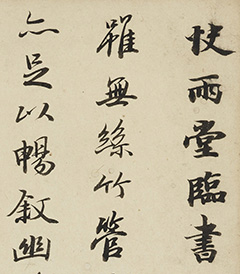 快雨堂臨書
雖無絲竹管
亦足以暢敘幽